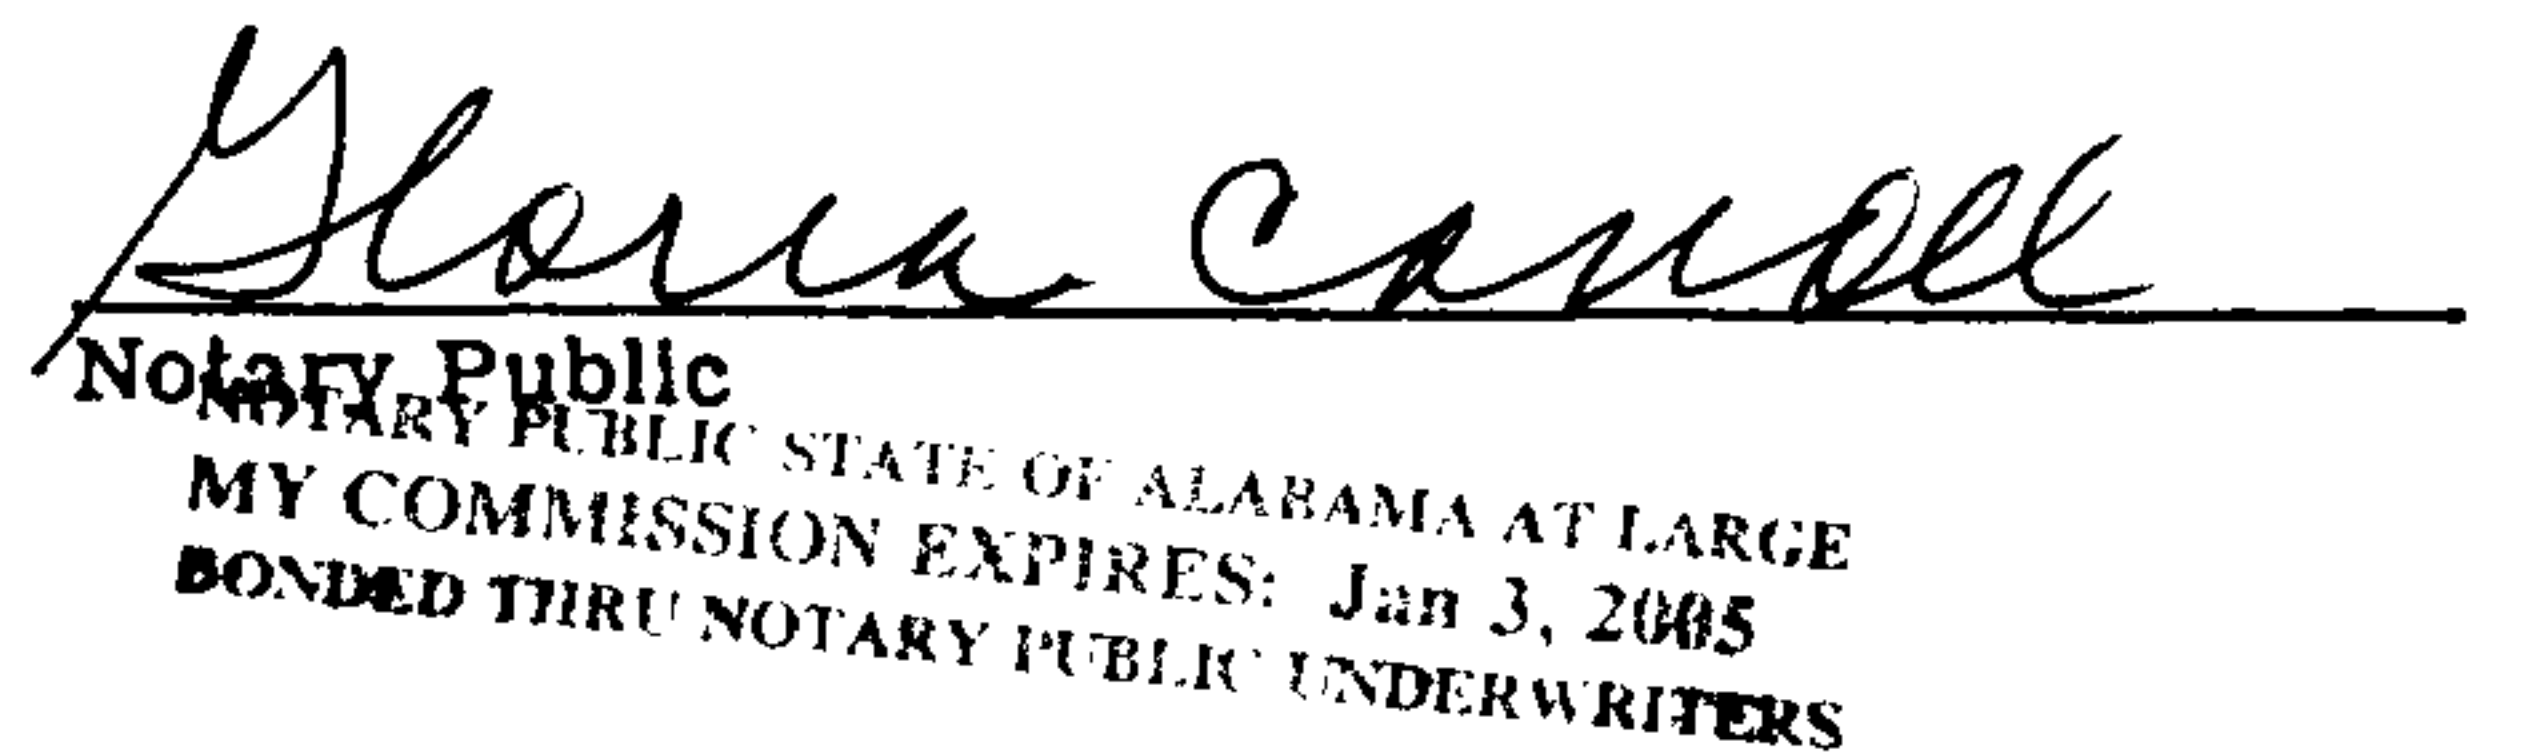 Gloria Carroll
Notary Public
NOTARY PUBLIC STATE OF ALABAMA AT LARGE
MY COMMISSION EXPIRES: Jan 3, 2005
BONDED THRU NOTARY PUBLIC UNDERWRITERS